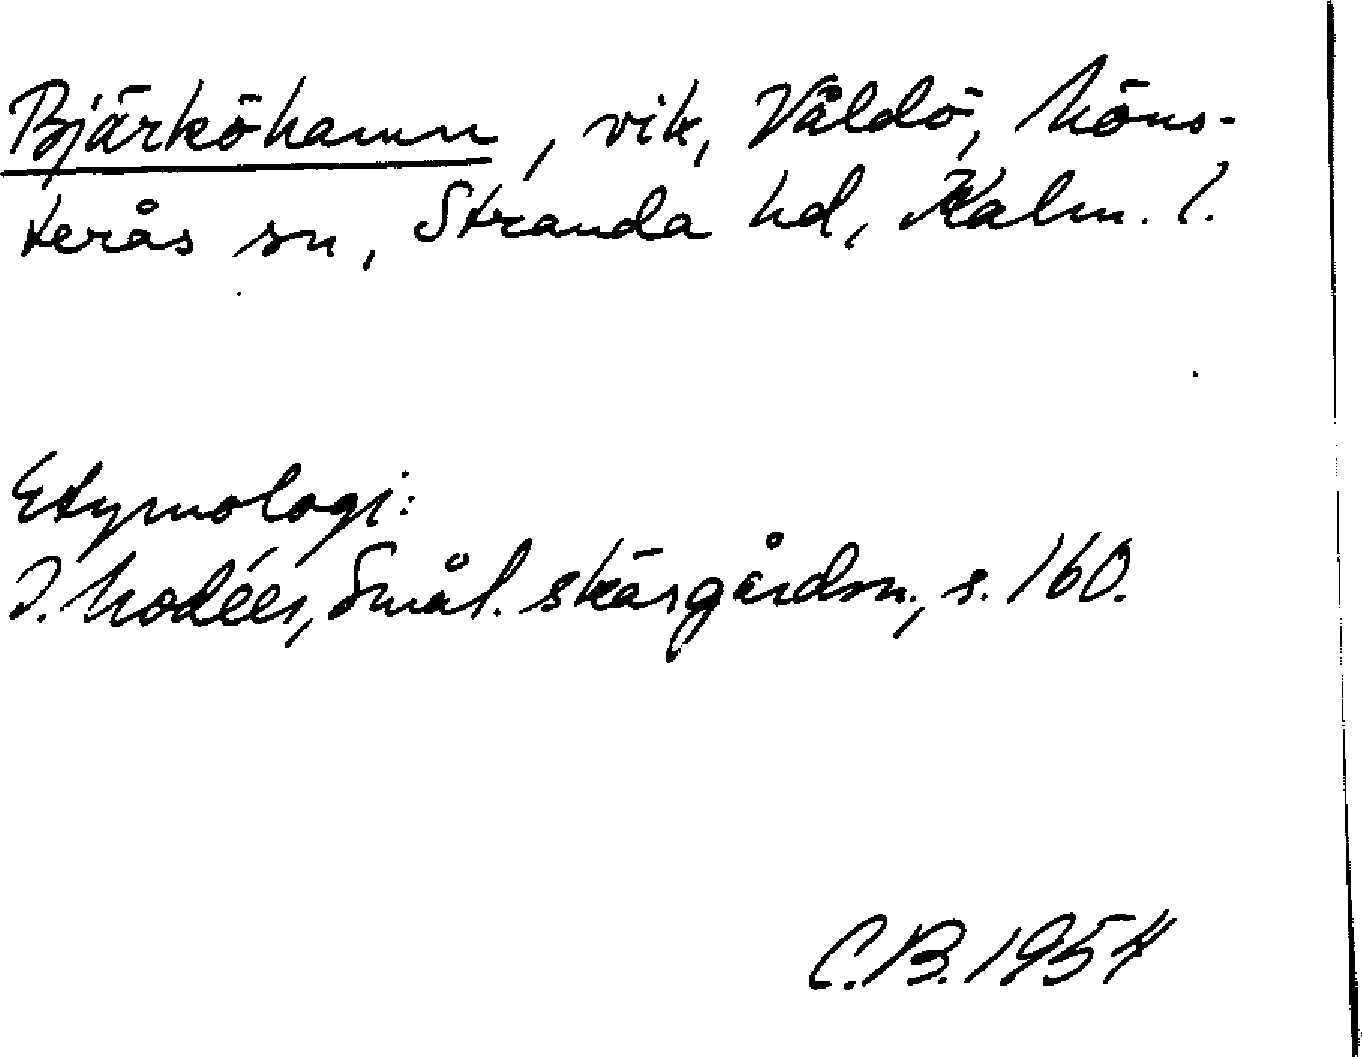 Bjärköhamn, vik, Våldö, Möns-
terås sn, Stranda hd, Kalm. l.
Etymologi:
I. Modéer, Smål. skärgårdsn., s. 160.
C.B. 1954